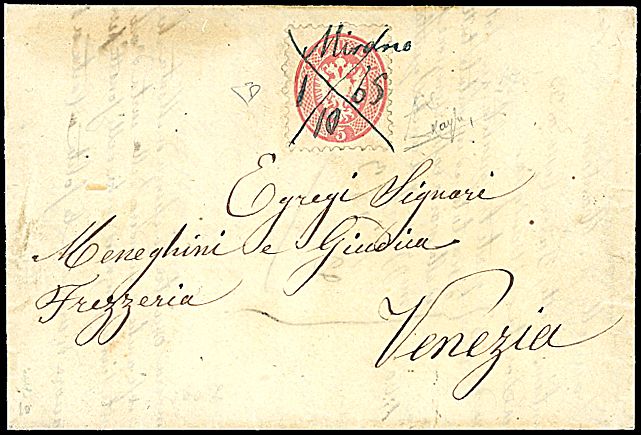 Mirano
1 65
10
5
Egregi Signori
Meneghini e Giudica
Frezzeria
Venezia